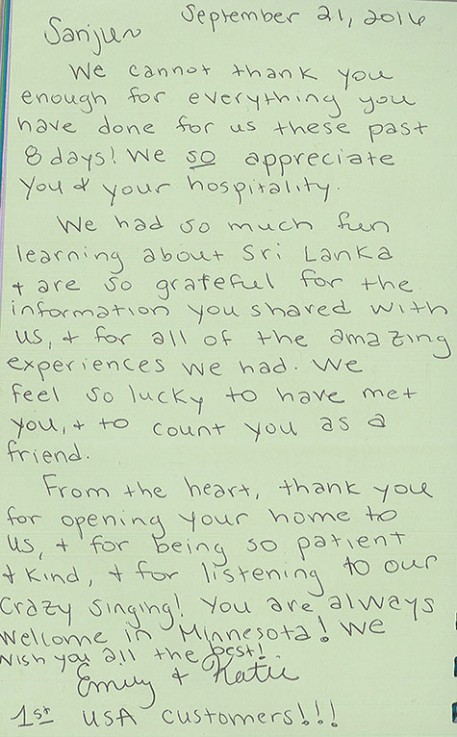 September 21, 2016
Sanjun
We cannot thank you
enough for everything you
have done for us these past
8 days! We so appreciate
you & your hospitality.
We had so much fun
learning about Sri Lanka
+ are so grateful for the
information you shared with
us, + for all of the amazing
experiences we had. We
feel so lucky to have met
you, + to count you as a
friend.
From the heart, thank you
for opening your home to
us, + for being so patient
+ kind, + for listening to our
crazy singing! You are always
welcome in Minnesota! We
wish you all the best!
Emily + Katie
1st USA customers!!!